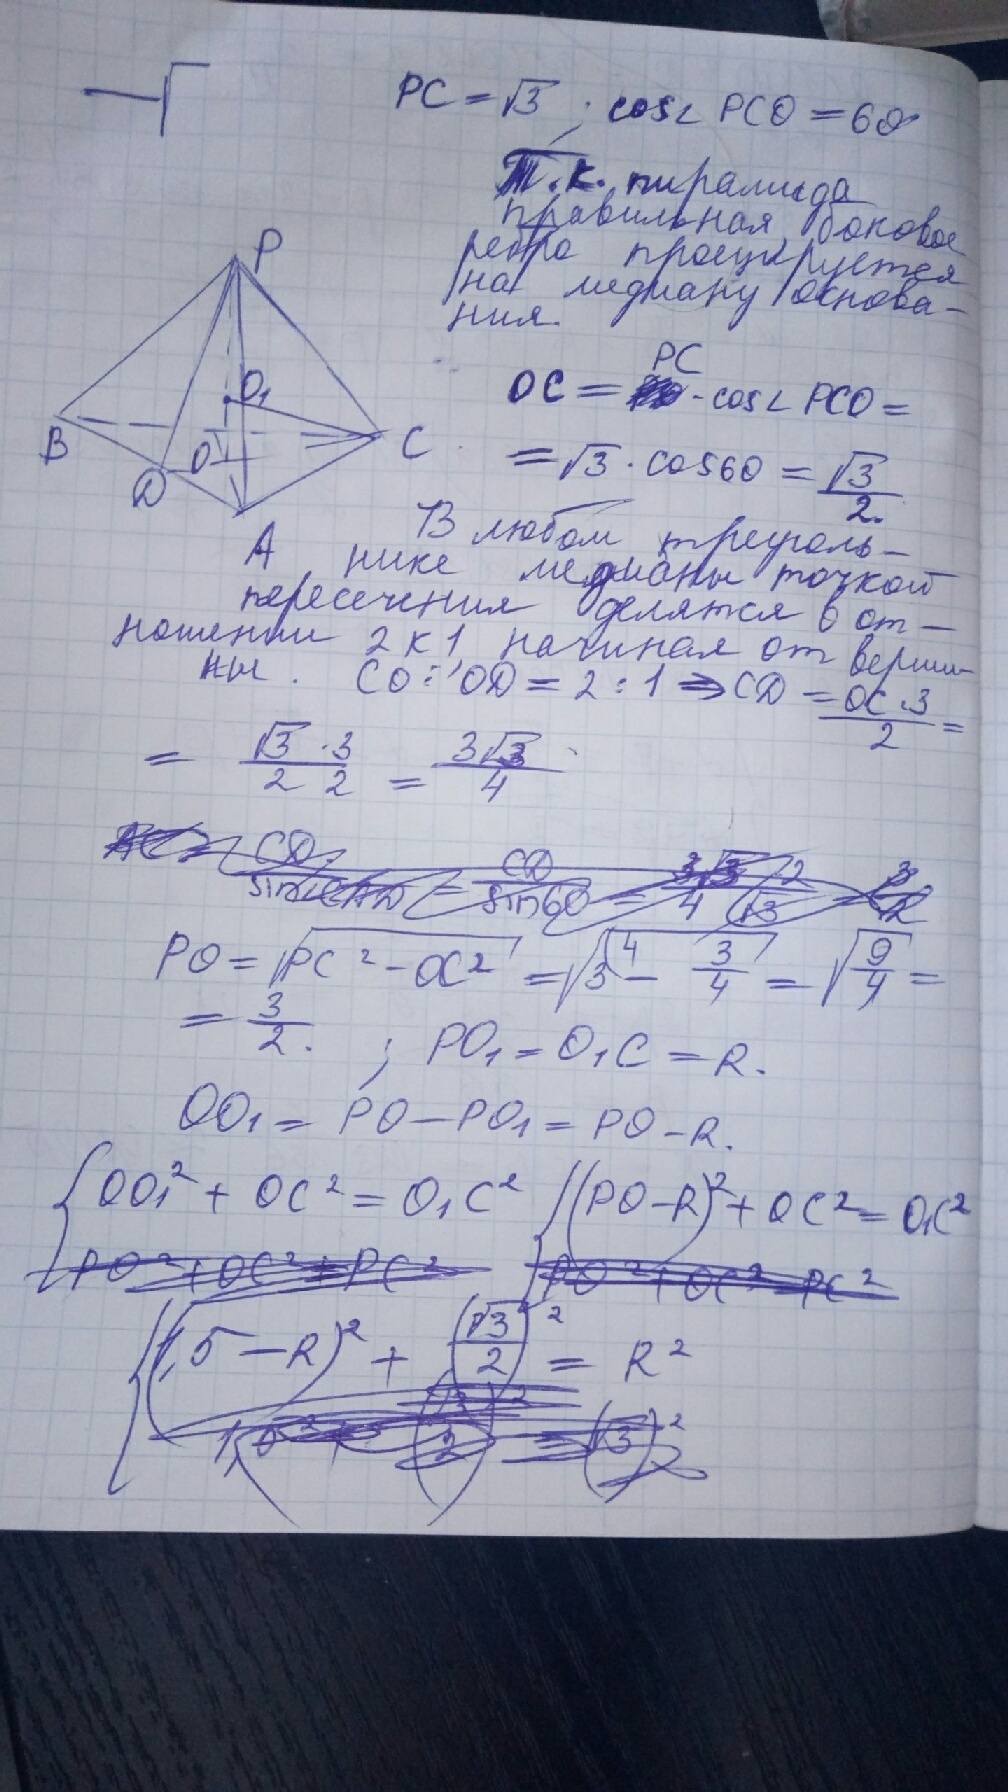 PC = √3 ; cos∠PCO = 60
Т.к. пирамида
правильная боковое
ребро проецируется
на медиану основа-
ния.
P
O₁
B
C
O
D
A
PC
OC = · cos∠PCO =
= √3 · cos60 = √3/2.
В любом треуголь-
нике медианы точкой
пересечения делятся в от-
ношении 2 к 1 начиная от верши-
ны. CO : OD = 2 : 1 ⇒ CD = OC·3/2 =
= √3·3/2 2 = 3√3/4
CD/sin = CD/sin60 = 3√3/4 · 2/√3 = 3/2
PO = √PC² - OC² = √3⁴ - 3/4 = √9/4 =
= 3/2. ; PO₁ = O₁C = R.
OO₁ = PO - PO₁ = PO - R.
{ OO₁² + OC² = O₁C² { (PO - R)² + OC² = O₁C²
PO² + OC² = PC² PO² + OC² = PC²
{ (1,5 - R)² + (√3/2)² = R²
1,5² + (√3/2)² = (√3)²